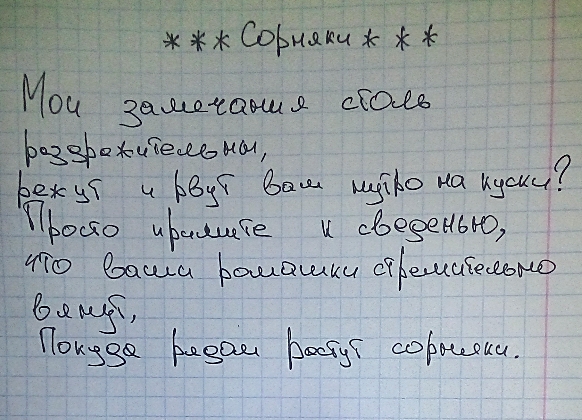 * * * Сорняки * * *
Мои замечания столь
раздражительны,
режут и рвут вам нутро на куски?
Просто примите к сведенью,
что ваши ромашки стремительно
вянут,
Покуда рядом растут сорняки.